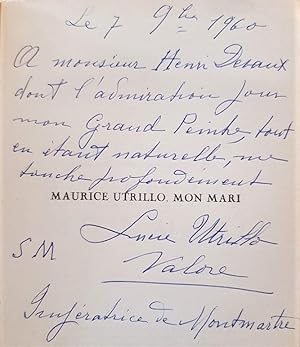 Le 7 9bre 1960
A monsieur Henri Devaux
dont l'admiration pour
mon Grand Peintre, tout
en étant naturelle, me
touche profondément
MAURICE UTRILLO, MON MARI
Lucie Utrillo
S M
Valore
Impératrice de Montmartre